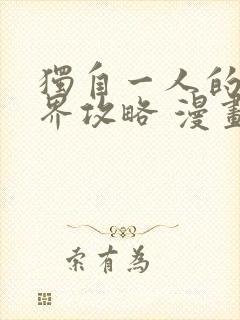 獨自一人的
界攻略 漫畫
索有為